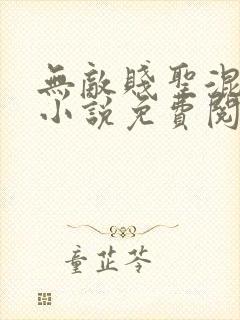 無敵賤聖混
小説免費閱
童芷苓